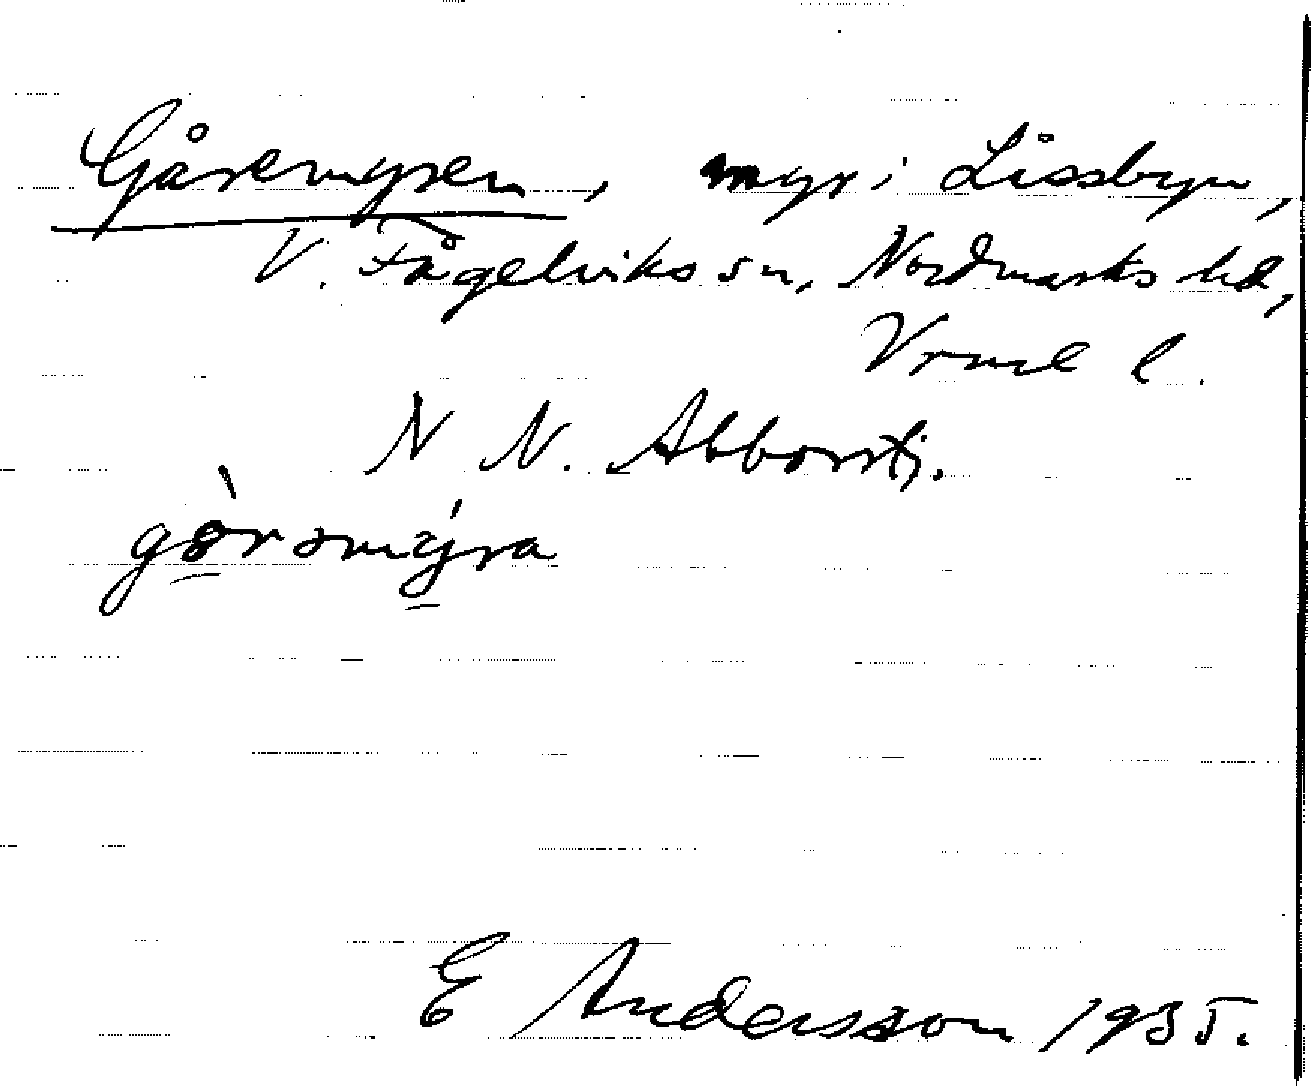 Gåremyren, myr i Lissbyn,
V. Fågelviks sn, Nordmarks hd,
Vrml l.
N N. Abborrtj.
gòrəmýra
E Andersson 1935.